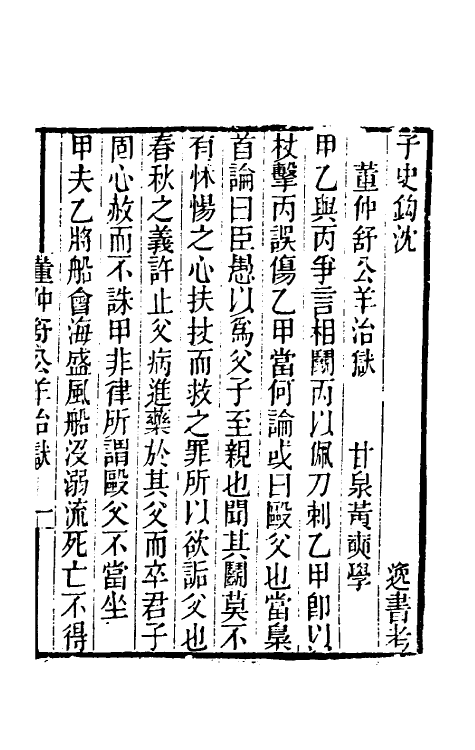 子史鈎沈　逸書考
董仲舒公羊治獄　甘泉黃奭學
甲乙與丙爭言相鬭丙以佩刀刺乙甲卽以
杖擊丙誤傷乙甲當何論或曰毆父也當梟
首論曰臣愚以爲父子至親也聞其鬭莫不
有怵惕之心扶杖而救之罪所以欲詬父也
春秋之義許止父病進藥於其父而卒君子
固心赦而不誅甲非律所謂毆父不當坐
甲夫乙將船會海盛風船沒溺流死亡不得
董仲舒公羊治獄　一